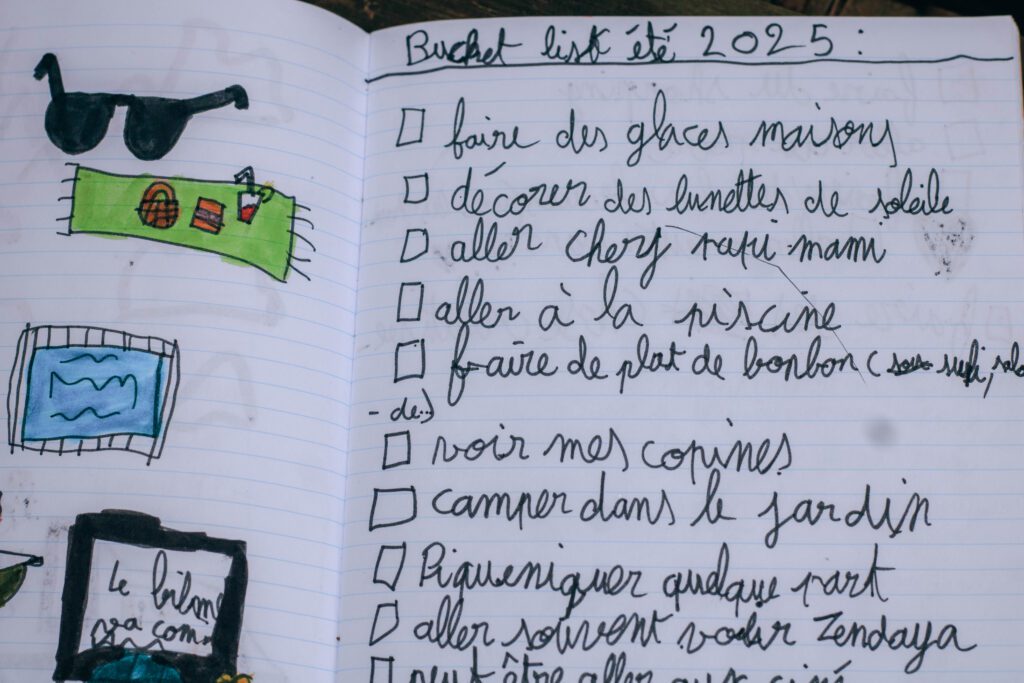 Bucket list été 2025 :
faire des glaces maisons
décorer des lunettes de soleile
aller chez papi mami
aller à la piscine
faire de plat de bonbon (
- de..)
voir mes copines
camper dans le jardin
Piqueniquer quelque part
aller souvent voir Zendaya
peut être aller aux ciné
le
va com